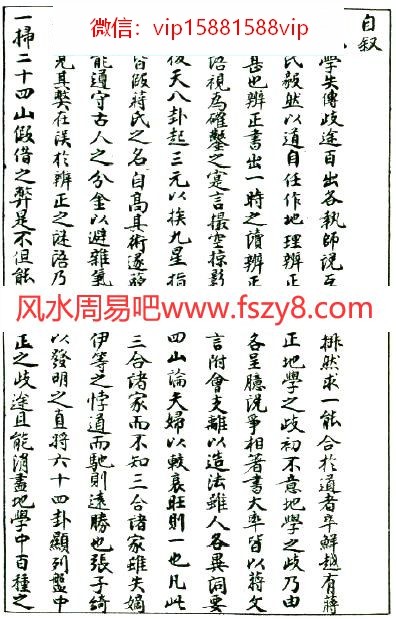 微信：vip15881588vip
自叙
學失傳歧途百出各執師説互
排然求一能合於道者卒鮮越有蔣
氏毅然以道自任作地理辨正
正地學之歧初不意地學之歧乃由
善也辨正書出一時之讀辨正
各呈臆説爭相著書大率皆以蔣文
語視爲確鑿之寔言撮空掠影
言附會支離以造法雖人各異詞要
後天八卦起三元以挨九星指
四山論夫婦以較衰旺則一也凡此
皆假蔣氏之名自高其術遂
三合諸家而不知三合諸家雖失嫡
能遵守古人之分金以避雜氣
伊等之悖道而馳則遠勝也張子綺
見其弊在誤於辨正之謎語乃
以發明之直將六十四卦顯列盤中
一掃二十四山假借之弊是不但能
正之歧途且能消盡地學中百種之
风水周易吧www.fszy8.com